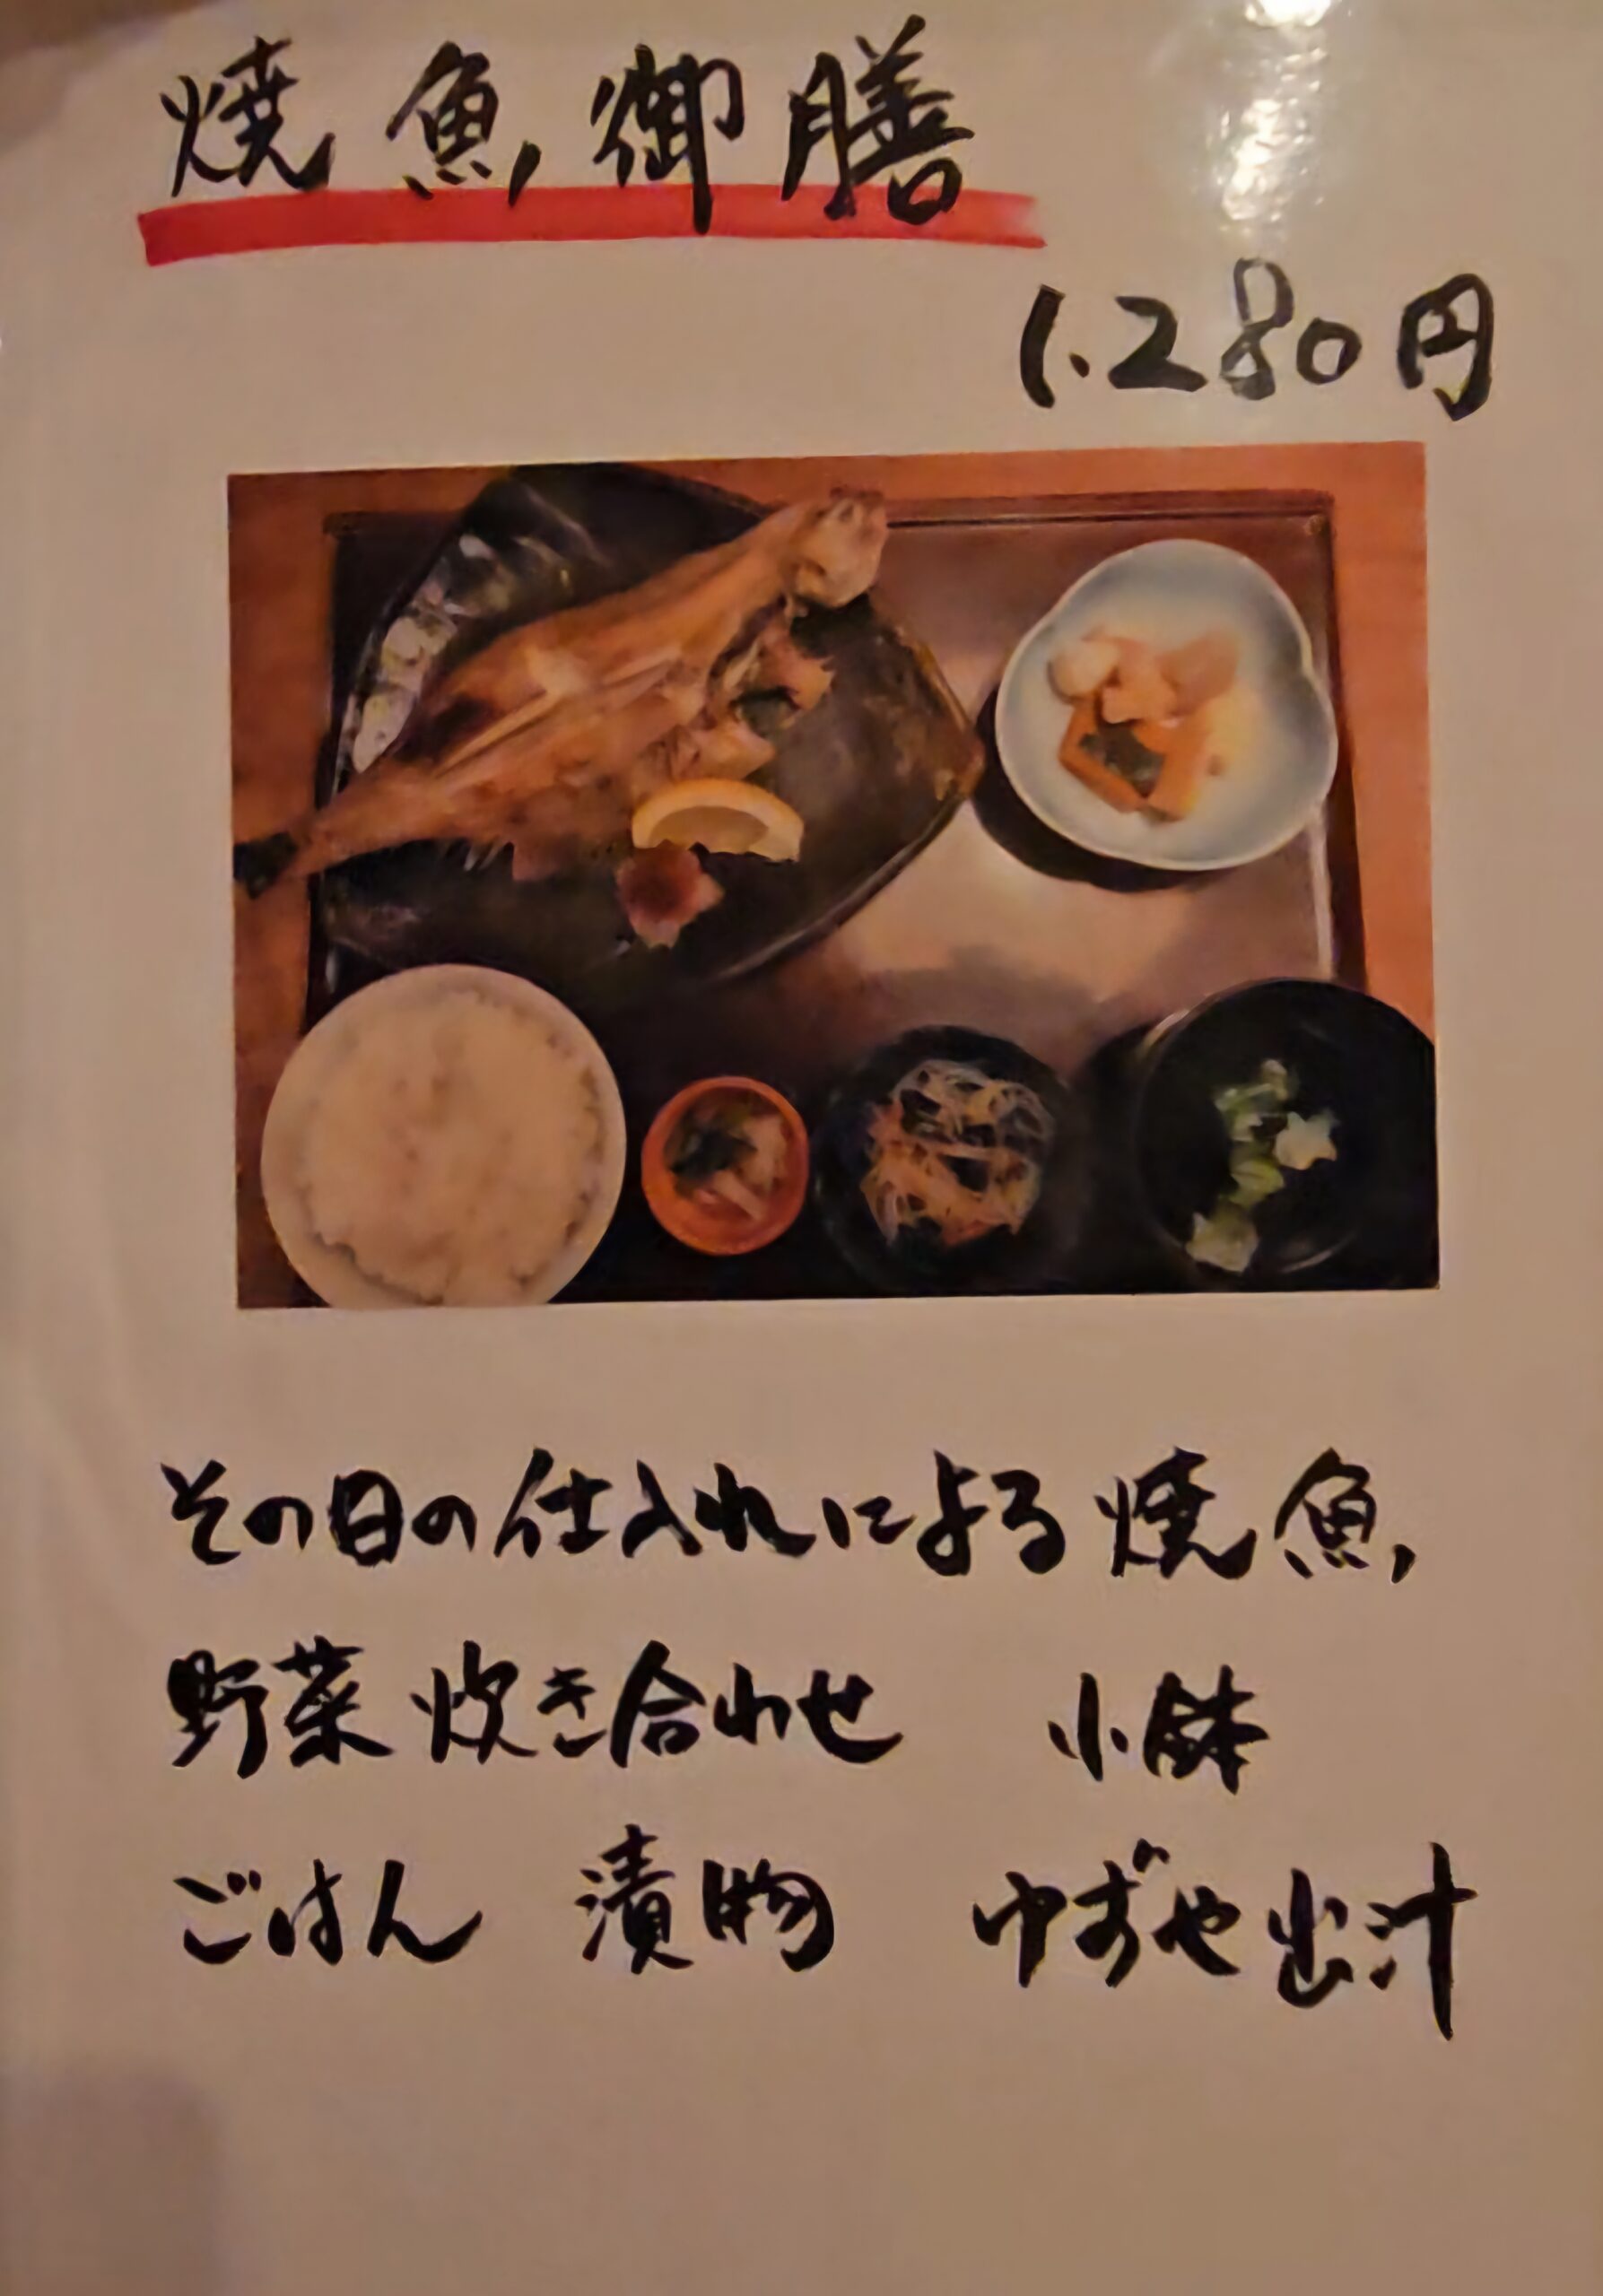 焼魚御膳
1.280円
その日の仕入れによる焼魚
野菜炊き合わせ 小鉢
ごはん 漬物 ゆずや出汁